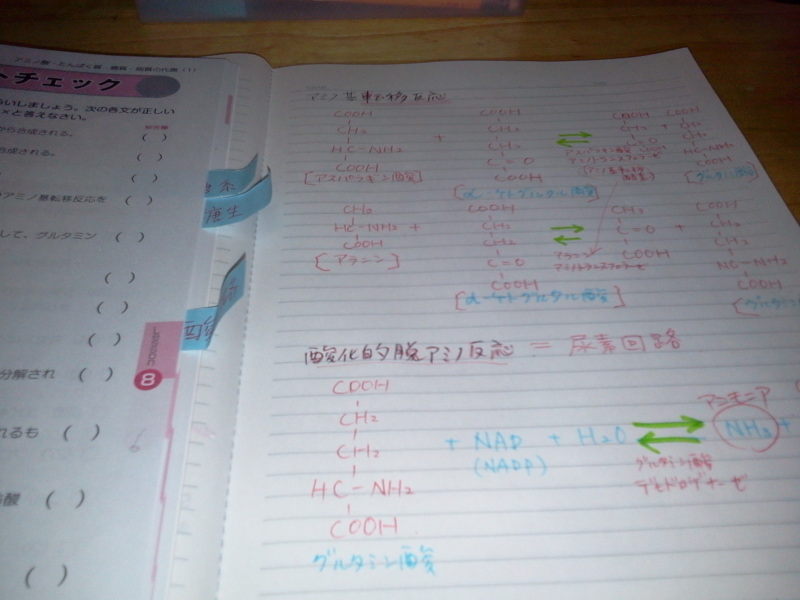 アミノ酸・たんぱく質・糖質・脂質の代謝（1）
トチェック
いしましょう。次の各文が正しい
×と答えなさい。
から合成される。 （ ）
合成される。 （ ）
（ ）
アミノ基転移反応を （ ）
して、グルタミン （ ）
（ ）
（ ）
（ ）
分解され （ ）
れるも （ ）
酸 （ ）
（ ）
LESSON
8
産生
酸
アミノ基転移反応
COOH
CH2
HC-NH2
COOH
[アスパラギン酸]
+
COOH
CH2
CH2
C=O
COOH
[α-ケトグルタル酸]
アスパラギン酸
アミノトランスフェラーゼ
(アミノ基転移
酵素)
COOH
CH2
C=O
COOH
+
COOH
CH2
CH2
HC-NH2
COOH
CH3
HC-NH2 +
COOH
[アラニン]
COOH
CH2
CH2
C=O
COOH
[α-ケトグルタル酸]
アラニン
アミノトランスフェラーゼ
CH3
C=O
COOH
+
COOH
CH2
CH2
HC-NH2
COOH
酸化的脱アミノ反応 = 尿素回路
COOH
CH2
CH2
HC-NH2
COOH
グルタミン酸
+ NAD + H2O
(NADP)
グルタミン酸
デヒドロゲナーゼ
アンモニア
NH3 +